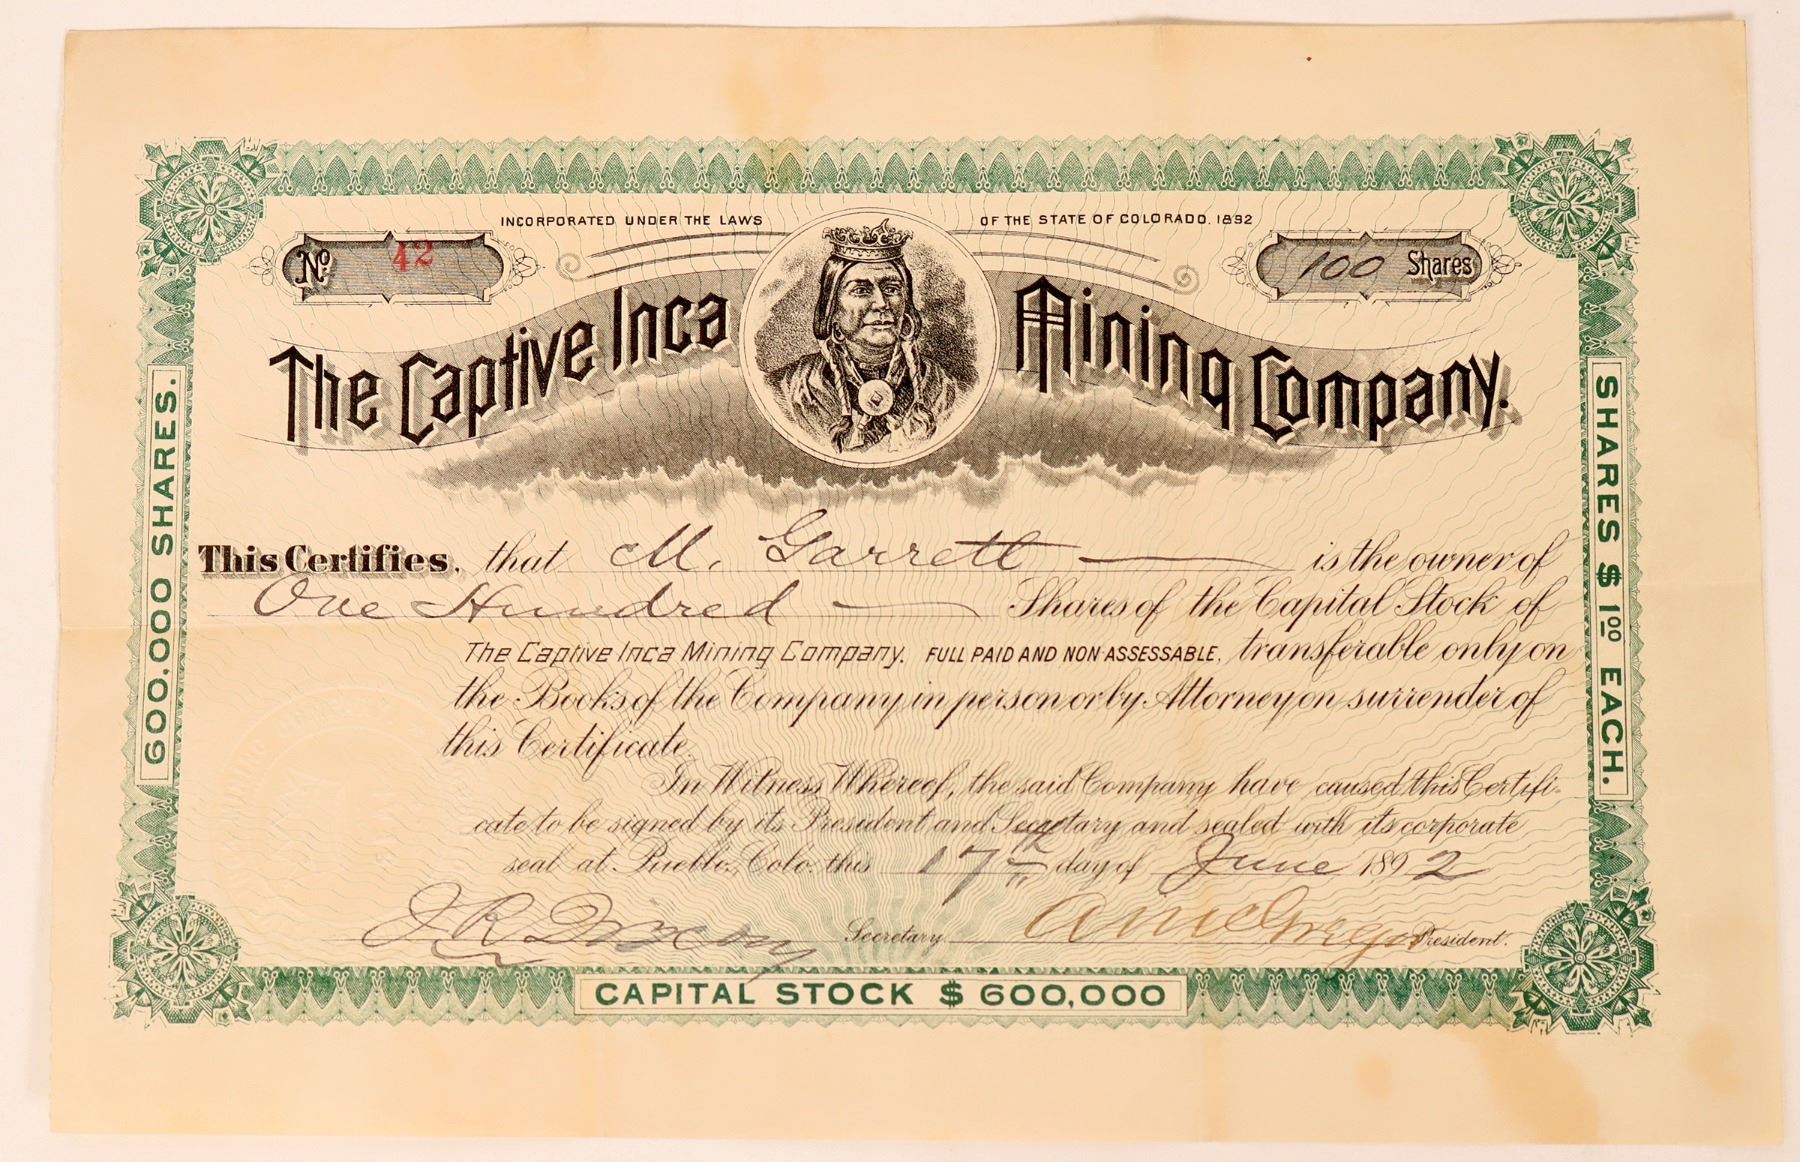 INCORPORATED UNDER THE LAWS OF THE STATE OF COLORADO. 1892
No. 42
100 Shares
The Captive Inca Mining Company.
600,000 SHARES.
SHARES $1.00 EACH.
This Certifies, that M. Garrett is the owner of
One Hundred Shares of the Capital Stock of
The Captive Inca Mining Company. FULL PAID AND NON-ASSESSABLE, transferable only on
the Books of the Company in person or by Attorney on surrender of
this Certificate.
In Witness Whereof, the said Company have caused this Certifi-
cate to be signed by its President and Secretary and sealed with its corporate
seal at Pueblo, Colo. this 17th day of June 1892
J R Secretary. A McGregor President.
CAPITAL STOCK $600,000